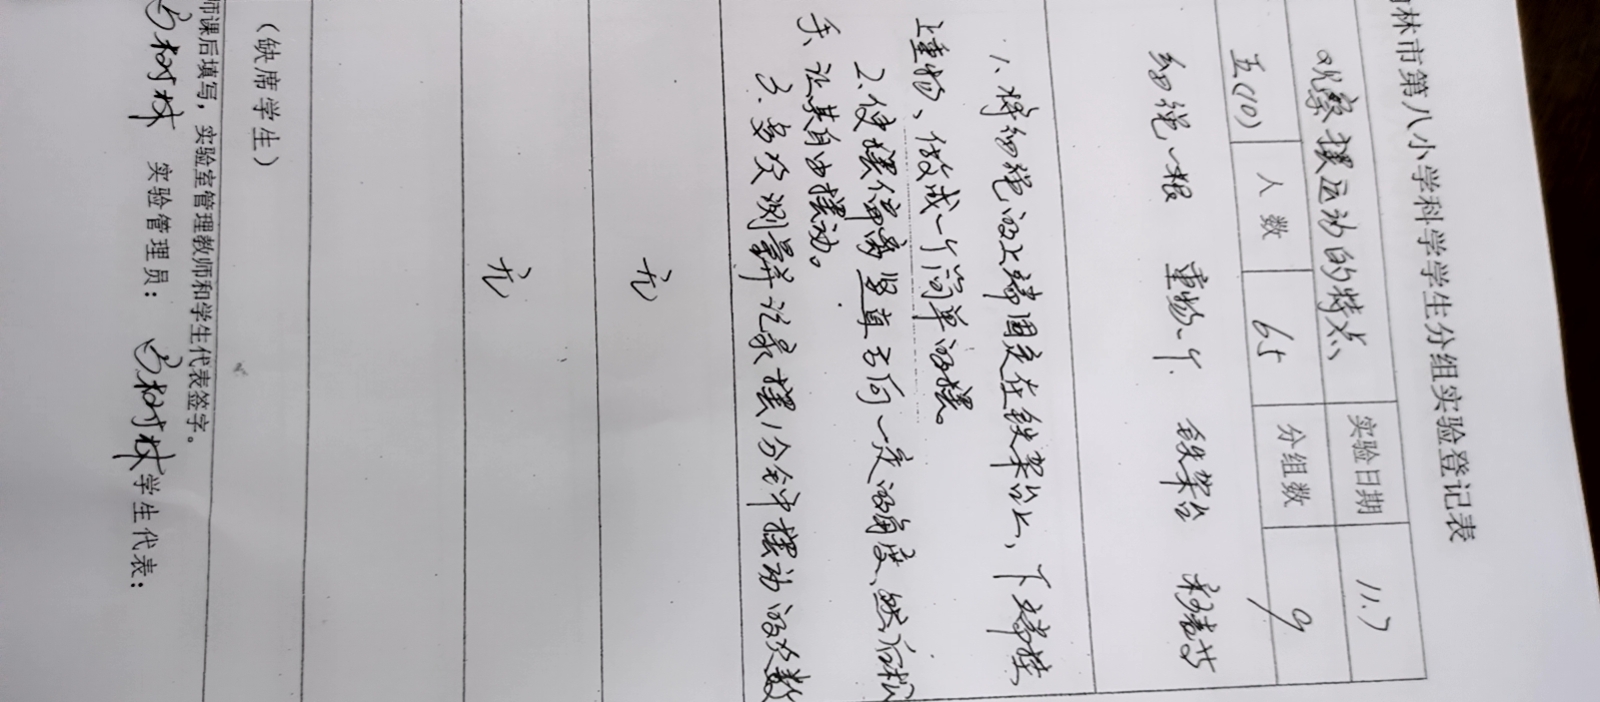 林市第八小学科学学生分组实验登记表
观察摆运动的特点 实验日期 11.7
五(10) 人数 65 分组数 9
细绳一根 重物一个 铁架台 秒表
1.将细绳的上端固定在铁架台上，下端挂
上重物、做成一个简单的摆。
2.使摆偏离竖直方向一定的角度、然后松
手、让其自由摆动。
3.多次测量并记录摆1分钟摆动的次数
无
无
（缺席学生）
师课后填写，实验室管理教师和学生代表签字。
实验管理员： 学生代表：